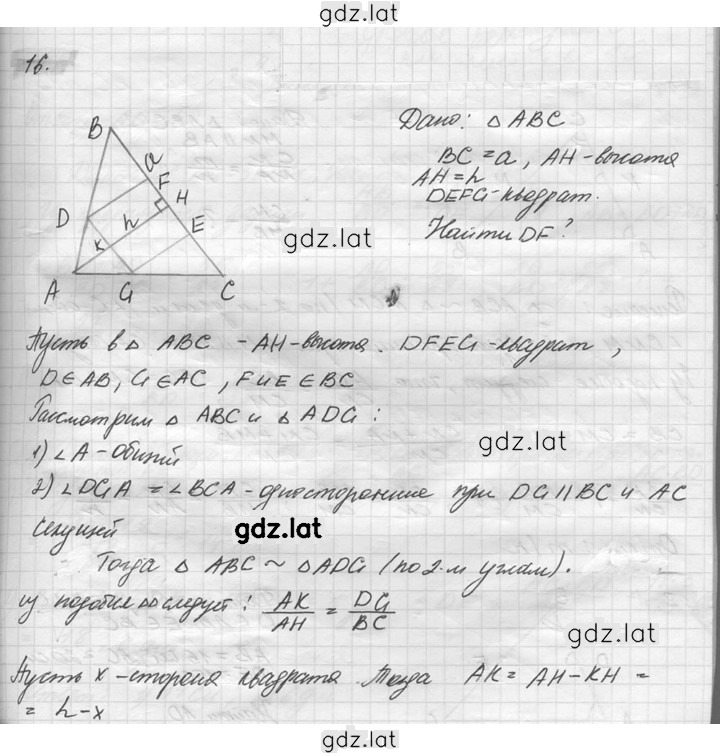 gdz.lat
16.
B
a
F
H
D
h
E
K
A
G
C
Дано: △ ABC
BC = a, AH - высота
AH = h
DEFG - квадрат.
Найти DF?
gdz.lat
Пусть в △ ABC - AH - высота. DFEG - квадрат,
D ∈ AB, G ∈ AC, F и E ∈ BC
Рассмотрим △ ABC и △ ADG:
gdz.lat
1) ∠A - общий
2) ∠DGA = ∠BCA - односторонние при DG || BC и AC
секущей
gdz.lat
Тогда △ ABC ~ △ ADG (по 2-м углам).
из подобия △△ следует: AK/AH = DG/BC
gdz.lat
Пусть x - сторона квадрата. Тогда AK = AH - KH =
= h - x
gdz.lat